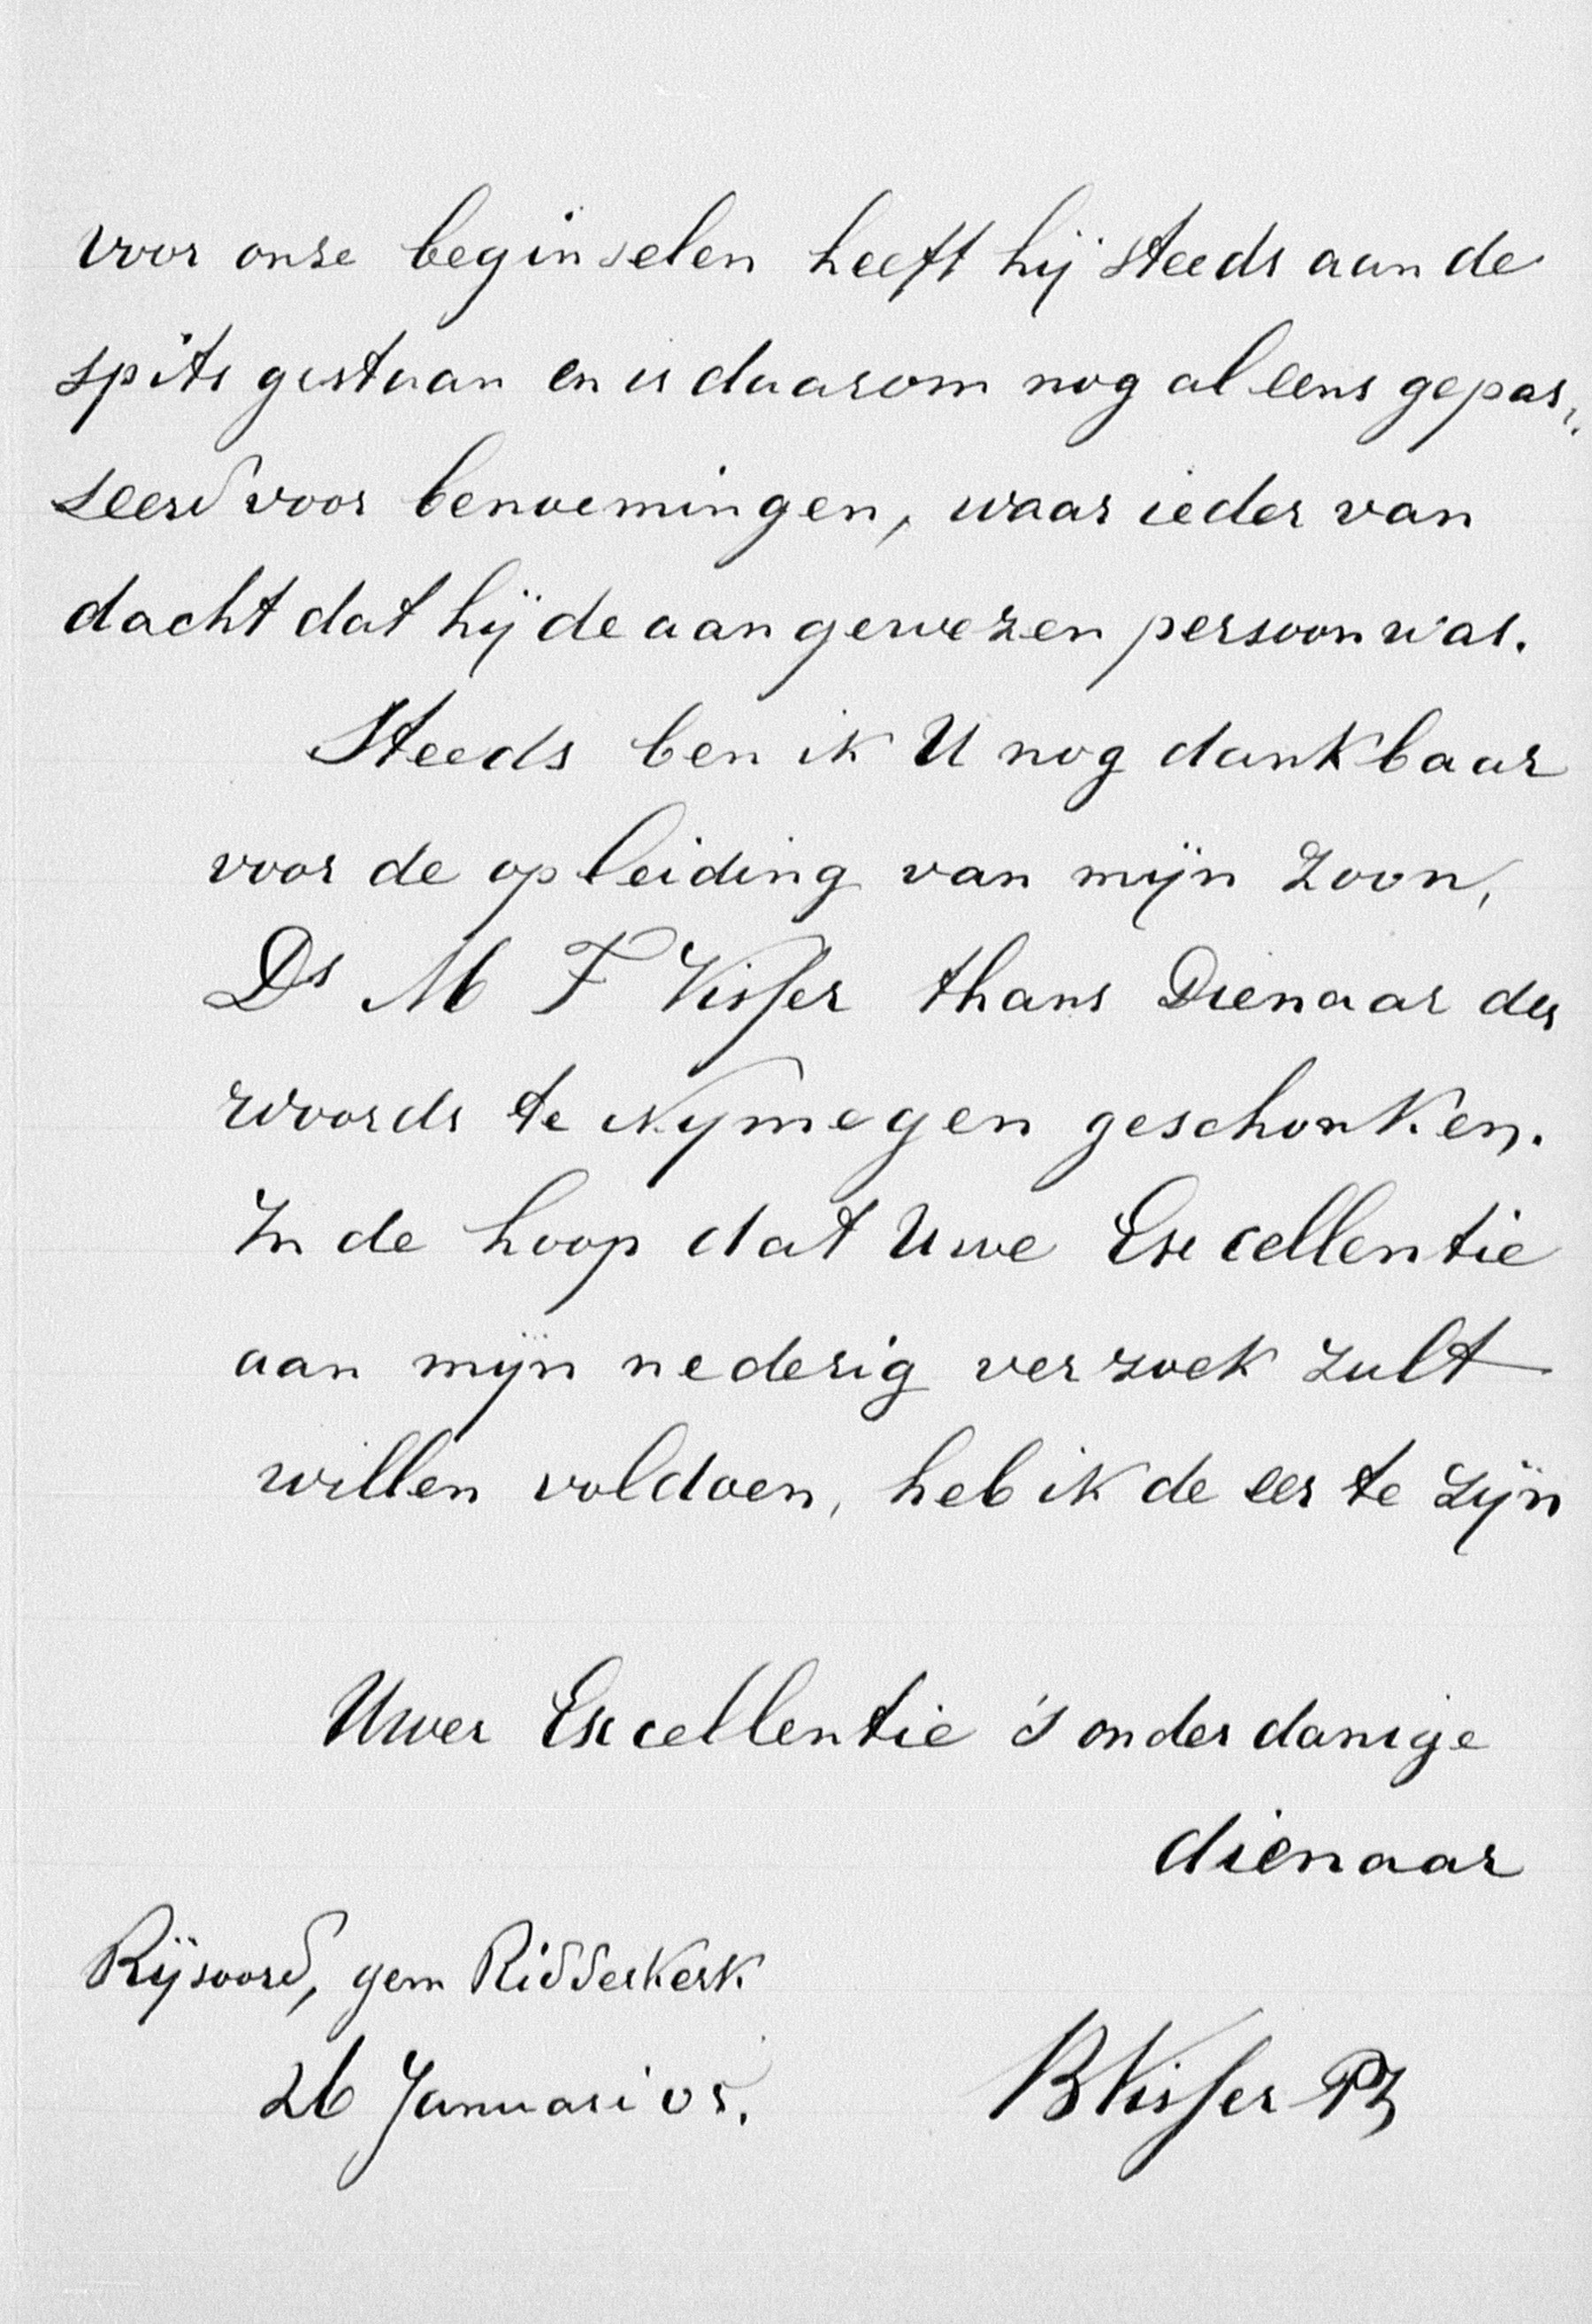 voor onze beginselen heeft hij steeds aan de
spits gestaan en is daarom nog al eens gepas„
seerd voor benoemingen, waar ieder van
dacht dat hij de aangewezen persoon was.
Steeds ben ik U nog dankbaar
voor de opleiding van mijn zoon,
Ds M F Visser thans Dienaar des
woords te Nymegen geschonken.
In de hoop dat Uwe Excellentie
aan mijn nederig verzoek zult
willen voldoen, heb ik de eer te zijn
Uwer Excellentie 's onderdanige
dienaar
Rijsoord, gem Ridderkerk
26 Januari 05.
B Visser Pz